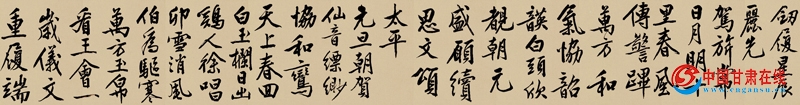 釰履星辰
麗先
駕旂常
日月明
里春風
傳警蹕
萬方和
氣協韶
韺白頭欣
覩朝元
盛願續
思文頌
太平
元旦朝賀
仙音縹緲
協和鸞
天上春回
白玉欄日出
鷄人徐唱
卯雪消風
伯為驅寒
萬方玉帛
看王會一
歲儀文
重履端
中国甘肃网
www.cngansu.cn